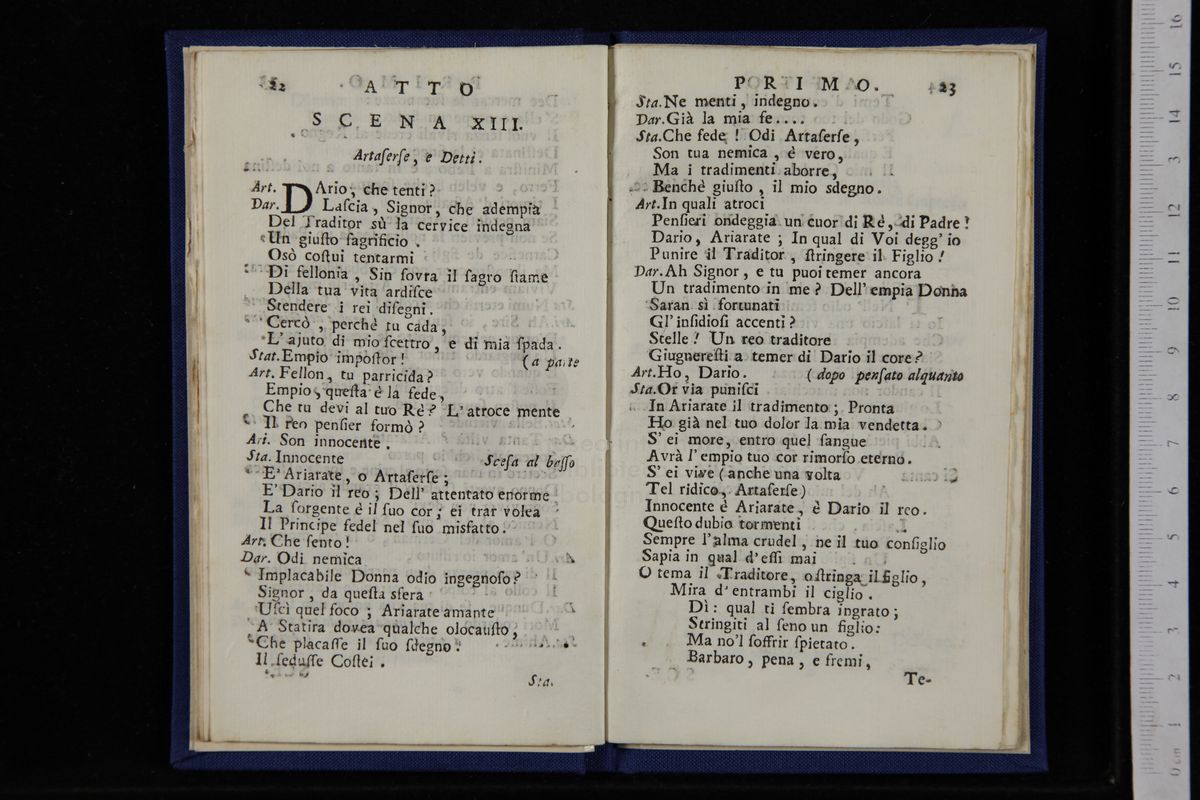 22
ATTO
SCENA XIII.
Artaſerſe, e Detti.
Art. DArio, che tenti?
Dar. Laſcia, Signor, che adempia
Del Traditor sù la cervice indegna
Un giuſto ſagrificio.
Osò coſtui tentarmi
Di fellonia, Sin ſovra il ſagro ſtame
Della tua vita ardiſce
Stendere i rei diſegni.
Cercò, perchè tu cada,
L'ajuto di mio ſcettro, e di mia ſpada.
Stat. Empio impoſtor! (a parte
Art. Fellon, tu parricida?
Empio, queſta è la fede,
Che tu devi al tuo Rè? L'atroce mente
Il reo penſier formò?
Ari. Son innocente.
Sta. Innocente Sceſa al baſſo
E' Ariarate, o Artaſerſe;
E' Dario il reo; Dell' attentato enorme
La ſorgente è il ſuo cor; ei trar volea
Il Principe fedel nel ſuo misfatto.
Art. Che ſento!
Dar. Odi nemica
Implacabile Donna odio ingegnoſo?
Signor, da queſta sfera
Uſcì quel foco; Ariarate amante
A Statira dovea qualche olocauſto,
Che placaſſe il ſuo ſdegno:
Il ſeduſſe Coſtei.
Sta.
PORTIMO.
23
Sta. Ne menti, indegno.
Dar. Già la mia fe....
Sta. Che fede! Odi Artaſerſe,
Son tua nemica, è vero,
Ma i tradimenti aborre,
Benchè giuſto, il mio sdegno.
Art. In quali atroci
Penſieri ondeggia un cuor di Rè, di Padre!
Dario, Ariarate; In qual di Voi degg' io
Punire il Traditor, ſtringere il Figlio!
Dar. Ah Signor, e tu puoi temer ancora
Un tradimento in me? Dell' empia Donna
Saran sì fortunati
Gl' inſidioſi accenti?
Stelle! Un reo traditore
Giugnereſti a temer di Dario il core?
Art. Ho, Dario. (dopo penſato alquanto
Sta. Or via puniſci
In Ariarate il tradimento; Pronta
Ho già nel tuo dolor la mia vendetta.
S' ei more, entro quel ſangue
Avrà l' empio tuo cor rimorſo eterno.
S' ei vive (anche una volta
Tel ridico, Artaſerſe)
Innocente è Ariarate, è Dario il reo.
Queſto dubio tormenti
Sempre l'alma crudel, ne il tuo conſiglio
Sapia in qual d'eſſi mai
O tema il Traditore, o ſtringa il figlio,
Mira d'entrambi il ciglio.
Dì: qual ti ſembra ingrato;
Stringiti al ſeno un figlio:
Ma no'l ſoffrir ſpietato.
Barbaro, pena, e fremi,
Te-